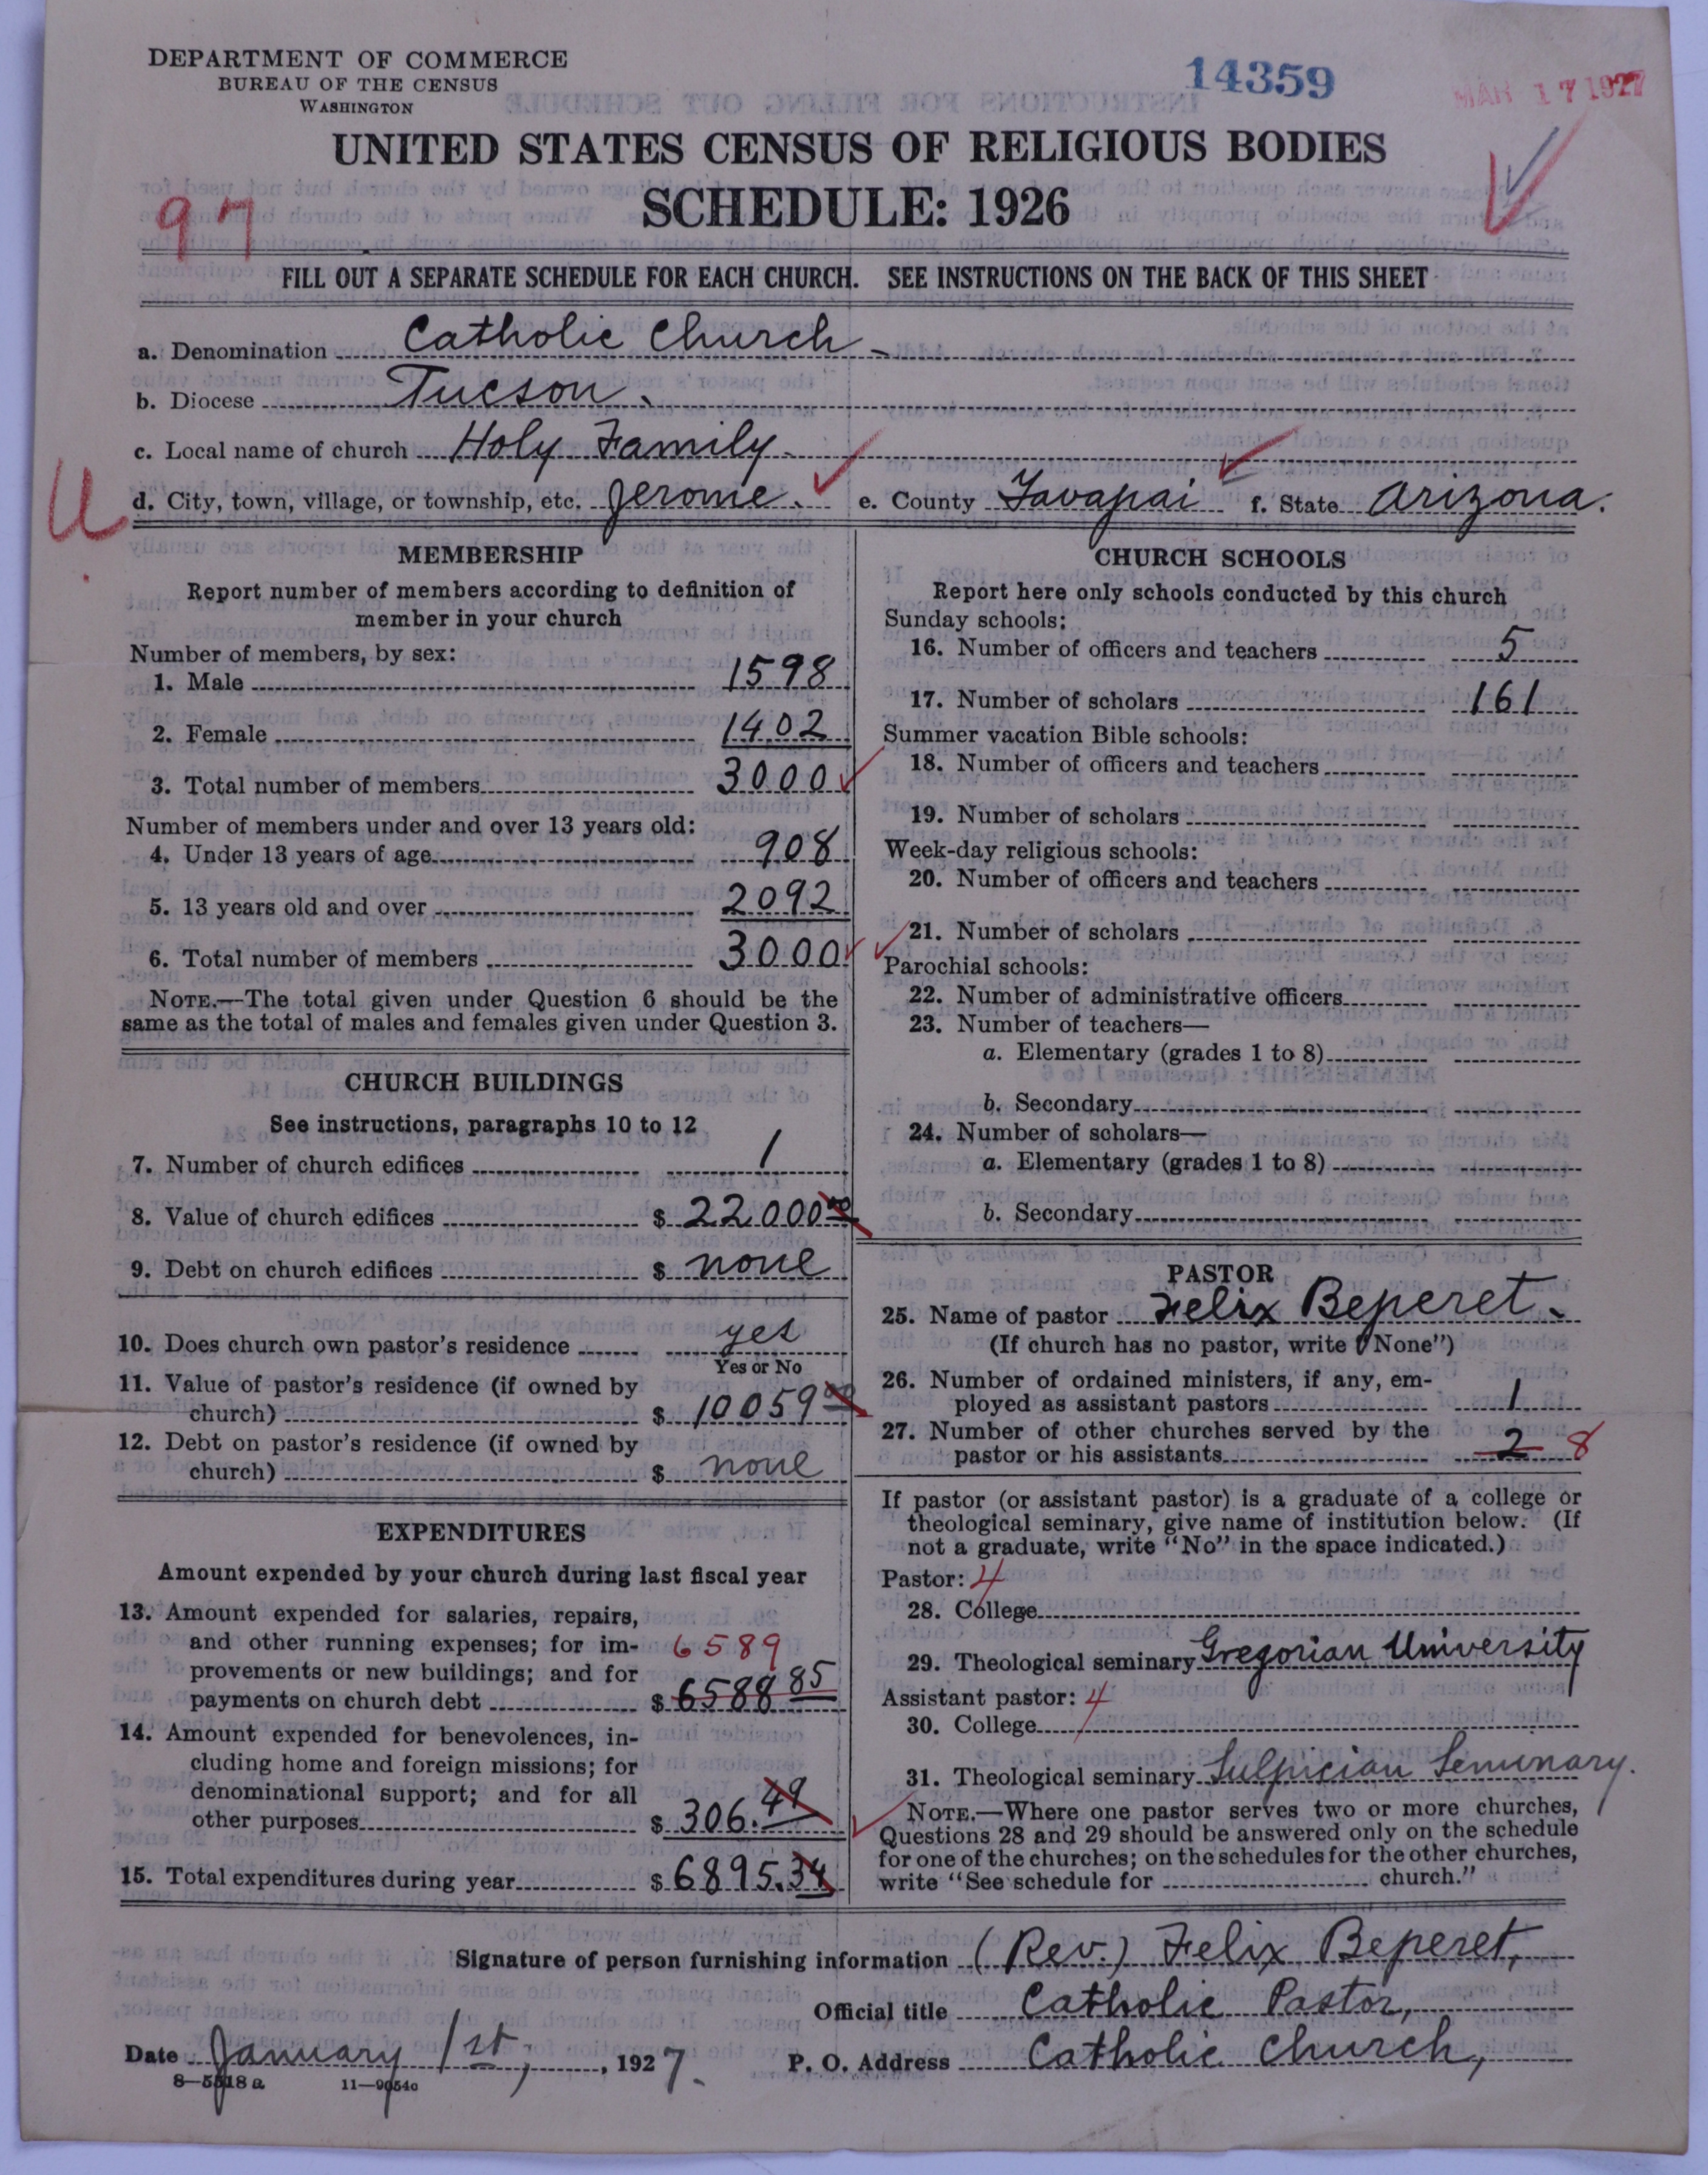 DEPARTMENT OF COMMERCE
BUREAU OF THE CENSUS
WASHINGTON
14359
MAR 17 1927
UNITED STATES CENSUS OF RELIGIOUS BODIES
SCHEDULE: 1926
97
FILL OUT A SEPARATE SCHEDULE FOR EACH CHURCH. SEE INSTRUCTIONS ON THE BACK OF THIS SHEET
a. Denomination Catholic Church
b. Diocese Tucson.
c. Local name of church Holy Family
U
d. City, town, village, or township, etc. Jerome. e. County Yavapai f. State Arizona.
MEMBERSHIP
Report number of members according to definition of
member in your church
Number of members, by sex:
1. Male 1598
2. Female 1402
3. Total number of members 3000
Number of members under and over 13 years old:
4. Under 13 years of age 908
5. 13 years old and over 2092
6. Total number of members 3000
NOTE.—The total given under Question 6 should be the
same as the total of males and females given under Question 3.
CHURCH BUILDINGS
See instructions, paragraphs 10 to 12
7. Number of church edifices 1
8. Value of church edifices $ 22000 00
9. Debt on church edifices $ none
10. Does church own pastor's residence yes
Yes or No
11. Value of pastor's residence (if owned by
church) $ 10059 00
12. Debt on pastor's residence (if owned by
church) $ none
EXPENDITURES
Amount expended by your church during last fiscal year
13. Amount expended for salaries, repairs,
and other running expenses; for im- 6589
provements or new buildings; and for
payments on church debt $ 6588 85
14. Amount expended for benevolences, in-
cluding home and foreign missions; for
denominational support; and for all
other purposes $ 306.49
15. Total expenditures during year $ 6895.34
CHURCH SCHOOLS
Report here only schools conducted by this church
Sunday schools:
16. Number of officers and teachers 5
17. Number of scholars 161
Summer vacation Bible schools:
18. Number of officers and teachers
19. Number of scholars
Week-day religious schools:
20. Number of officers and teachers
21. Number of scholars
Parochial schools:
22. Number of administrative officers
23. Number of teachers—
a. Elementary (grades 1 to 8)
b. Secondary
24. Number of scholars—
a. Elementary (grades 1 to 8)
b. Secondary
PASTOR
25. Name of pastor Felix Beperet.
(If church has no pastor, write "None")
26. Number of ordained ministers, if any, em-
ployed as assistant pastors 1
27. Number of other churches served by the
pastor or his assistants 2 8
If pastor (or assistant pastor) is a graduate of a college or
theological seminary, give name of institution below. (If
not a graduate, write "No" in the space indicated.)
Pastor: 4
28. College
29. Theological seminary Gregorian University
Assistant pastor: 4
30. College
31. Theological seminary Sulpician Seminary.
NOTE.—Where one pastor serves two or more churches,
Questions 28 and 29 should be answered only on the schedule
for one of the churches; on the schedules for the other churches,
write "See schedule for church."
Signature of person furnishing information (Rev.) Felix Beperet,
Official title Catholic Pastor,
Date January 1st, 1927. P. O. Address Catholic Church,
8—5518 a 11—9054c